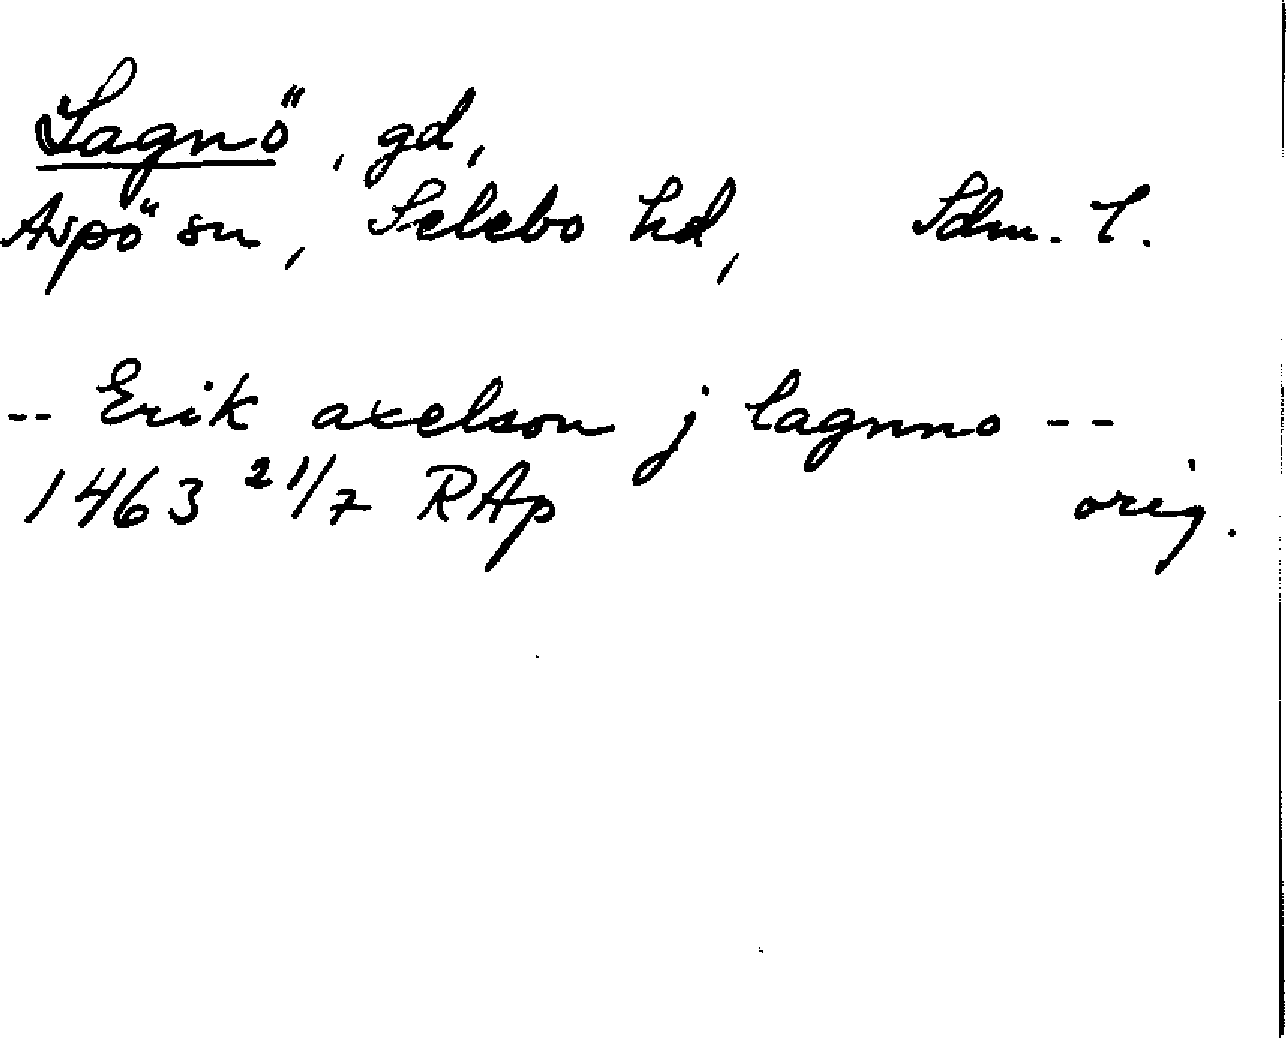 Lagnö, gd,
Aspö sn, Selebo hd, Sdm. l.
-- Erik axelson j lagnno --
1463 21/7 RAp orig.